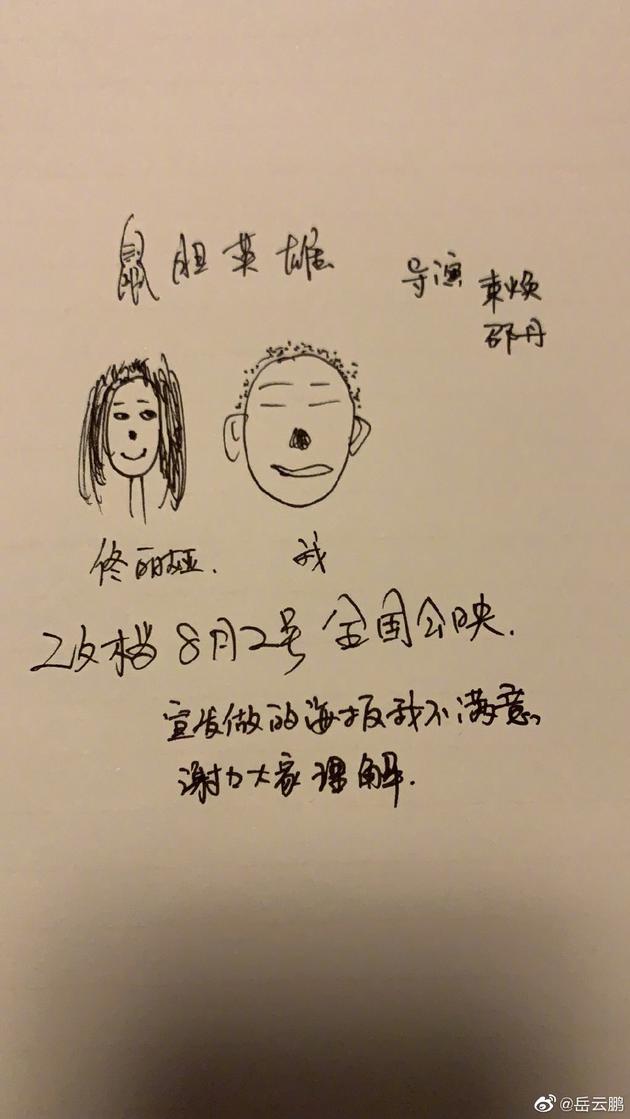 鼠胆英雄
导演 束焕
邵丹
佟丽娅.
我
改档 8月2号 全国公映.
宣发做的海报我不满意。
谢谢大家理解.
@岳云鹏